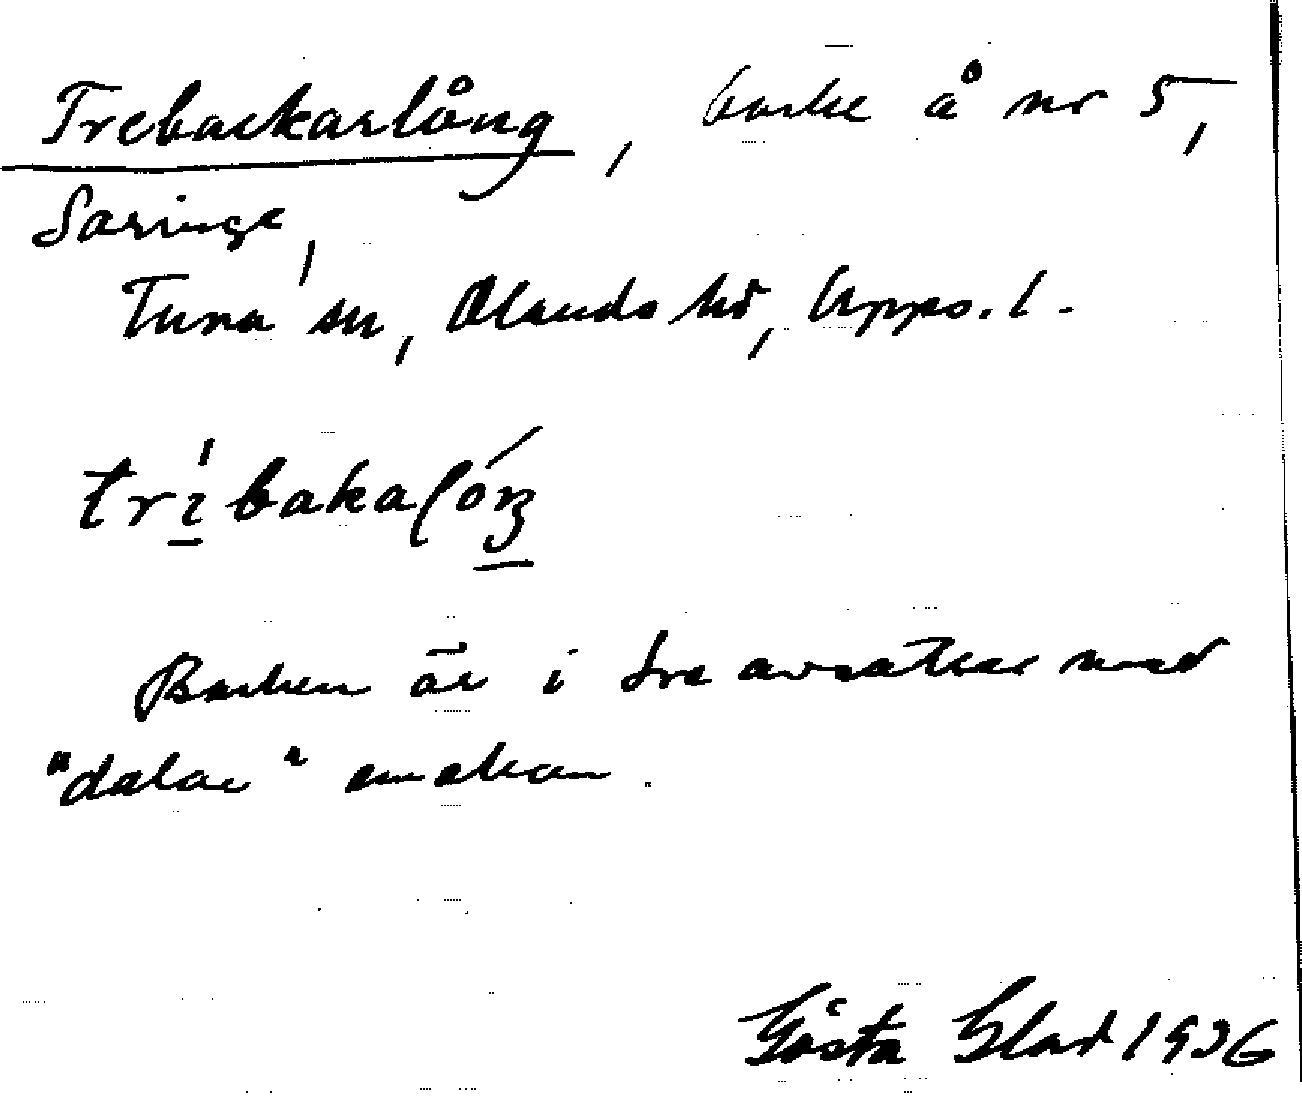 Trebackarlång, backe å nr 5,
Saringe,
Tuna sn, Olands hd, Upps. l.
tribakalóŋ
Backen är i tre avsatser med
"dalar" emellan.
Gösta Glad 1936